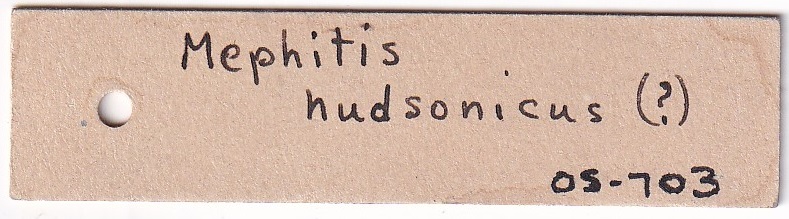 Mephitis
hudsonicus (?)
OS-703